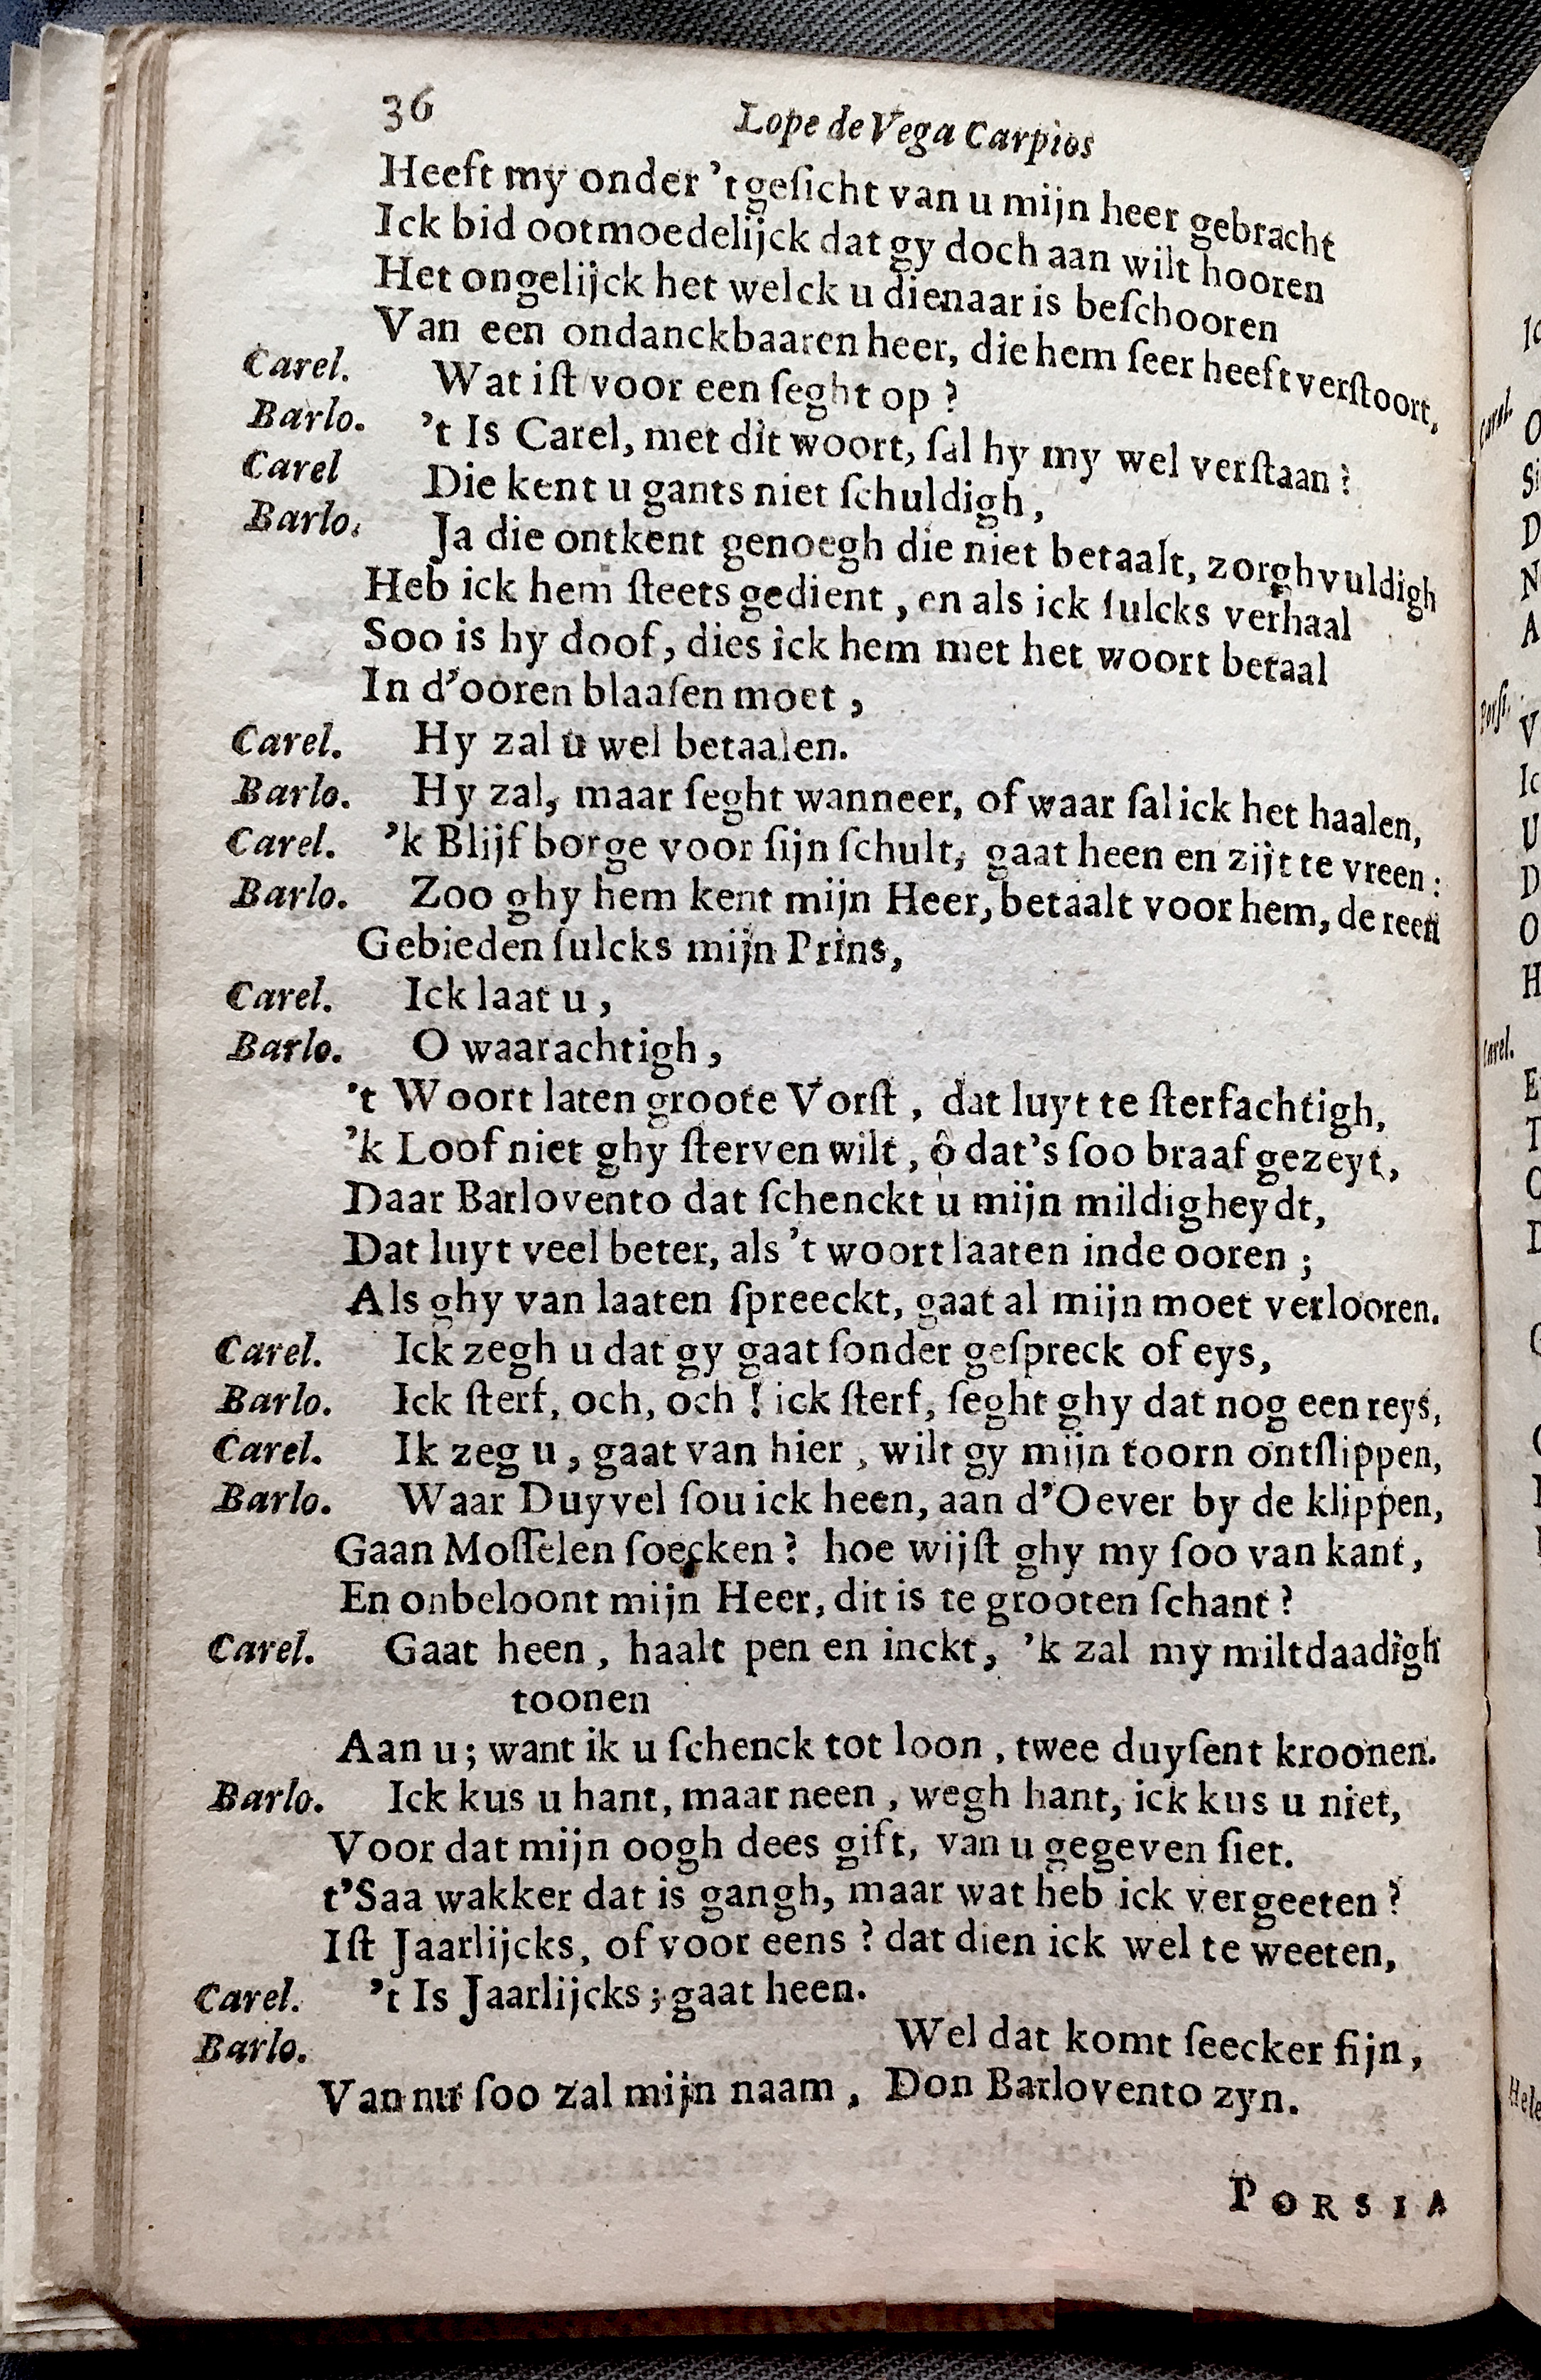 36 Lope de Vega Carpios
Heeft my onder 't geſicht van u mijn heer gebracht
Ick bid ootmoedelijck dat gy doch aan wilt hooren
Het ongelijck het welck u dienaar is beſchooren
Van een ondanckbaaren heer, die hem ſeer heeft verſtoort,
Carel. Wat iſt voor een ſeght op ?
Barlo. 't Is Carel, met dit woort, ſal hy my wel verſtaan ?
Carel Die kent u gants niet ſchuldigh,
Barlo. Ja die ontkent genoegh die niet betaalt, zorghvuldigh
Heb ick hem ſteets gedient, en als ick ſulcks verhaal
Soo is hy doof, dies ick hem met het woort betaal
In d'ooren blaaſen moet,
Carel. Hy zal u wel betaalen.
Barlo. Hy zal, maar ſeght wanneer, of waar ſal ick het haalen,
Carel. 'k Blijf borge voor ſijn ſchult, gaat heen en zijt te vreen :
Barlo. Zoo ghy hem kent mijn Heer, betaalt voor hem, de reen
Gebieden ſulcks mijn Prins,
Carel. Ick laat u,
Barlo. O waarachtigh,
't Woort laten groote Vorſt, dat luyt te ſterfachtigh,
'k Loof niet ghy ſterven wilt, ô dat's ſoo braaf gezeyt,
Daar Barlovento dat ſchenckt u mijn mildigheydt,
Dat luyt veel beter, als 't woort laaten inde ooren ;
Als ghy van laaten ſpreeckt, gaat al mijn moet verlooren.
Carel. Ick zegh u dat gy gaat ſonder geſpreck of eys,
Barlo. Ick ſterf, och, och ! ick ſterf, ſeght ghy dat nog een reys,
Carel. Ik zeg u, gaat van hier, wilt gy mijn toorn ontſlippen,
Barlo. Waar Duyvel ſou ick heen, aan d'Oever by de klippen,
Gaan Moſſelen ſoecken ? hoe wijſt ghy my ſoo van kant,
En onbeloont mijn Heer, dit is te grooten ſchant ?
Carel. Gaat heen, haalt pen en inckt, 'k zal my miltdaadigh
toonen
Aan u; want ik u ſchenck tot loon, twee duyſent kroonen.
Barlo. Ick kus u hant, maar neen, wegh hant, ick kus u niet,
Voor dat mijn oogh dees gift, van u gegeven ſiet.
t'Saa wakker dat is gangh, maar wat heb ick vergeeten ?
Iſt Jaarlijcks, of voor eens ? dat dien ick wel te weeten,
Carel. 't Is Jaarlijcks ; gaat heen.
Barlo. Wel dat komt ſeecker ſijn,
Van nu ſoo zal mijn naam, Don Barlovento zyn.
PORSIA